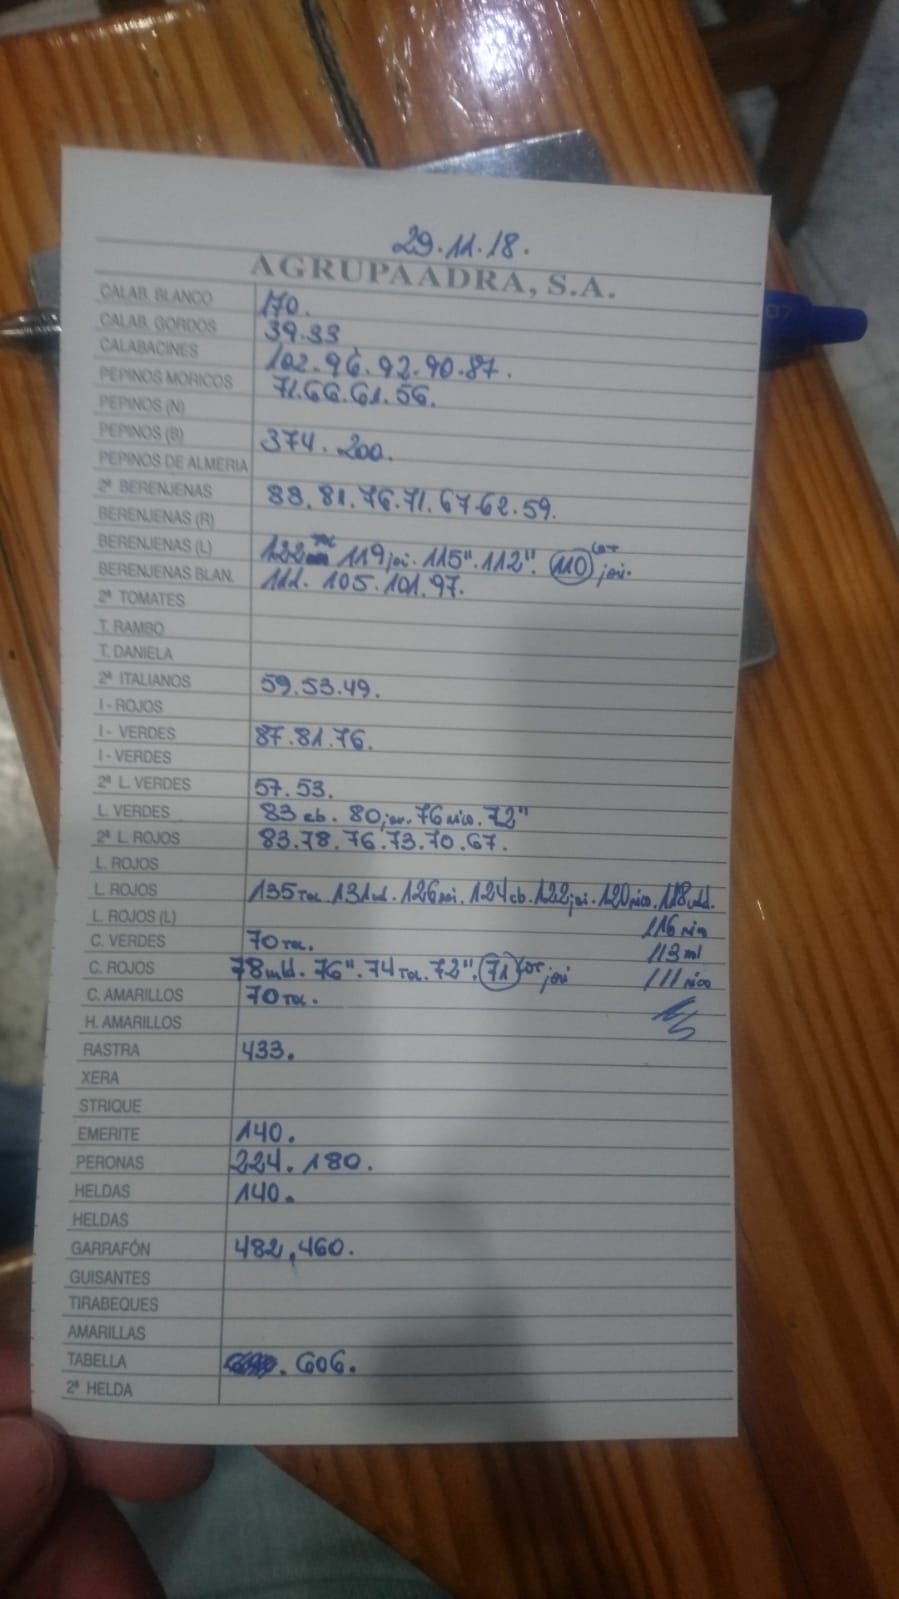 29.11.18.
AGRUPAADRA, S.A.
CALAB. BLANCO 170.
CALAB. GORDOS 39.33
CALABACINES 102.96.92.90.87.
PEPINOS MORICOS 71.66.61.56.
PEPINOS (N)
PEPINOS (B) 374. 200.
PEPINOS DE ALMERIA
2ª BERENJENAS 88.81.76.71.67.62.59.
BERENJENAS (R)
BERENJENAS (L) 122 119 joi. 115". 112". 110 joi.
BERENJENAS BLAN. 111. 105.101.97.
2ª TOMATES
T. RAMBO
T. DANIELA
2ª ITALIANOS 59.53.49.
I - ROJOS
I - VERDES 87.81.76.
I - VERDES
2ª L. VERDES 57.53.
L. VERDES 83 cb. 80 76 nico. 72"
2ª L. ROJOS 83.78.76.73.70.67.
L. ROJOS
L. ROJOS 135 131 126 124 cb. 122 joi. 120 nico. 118 mld.
L. ROJOS (L) 116
C. VERDES 70 113 ml
C. ROJOS 78 mld. 76". 74 72". 71 joi 111 nico
C. AMARILLOS 70
H. AMARILLOS
RASTRA 433.
XERA
STRIQUE
EMERITE 140.
PERONAS 224. 180.
HELDAS 140.
HELDAS
GARRAFÓN 482,460.
GUISANTES
TIRABEQUES
AMARILLAS
TABELLA . 606.
2ª HELDA